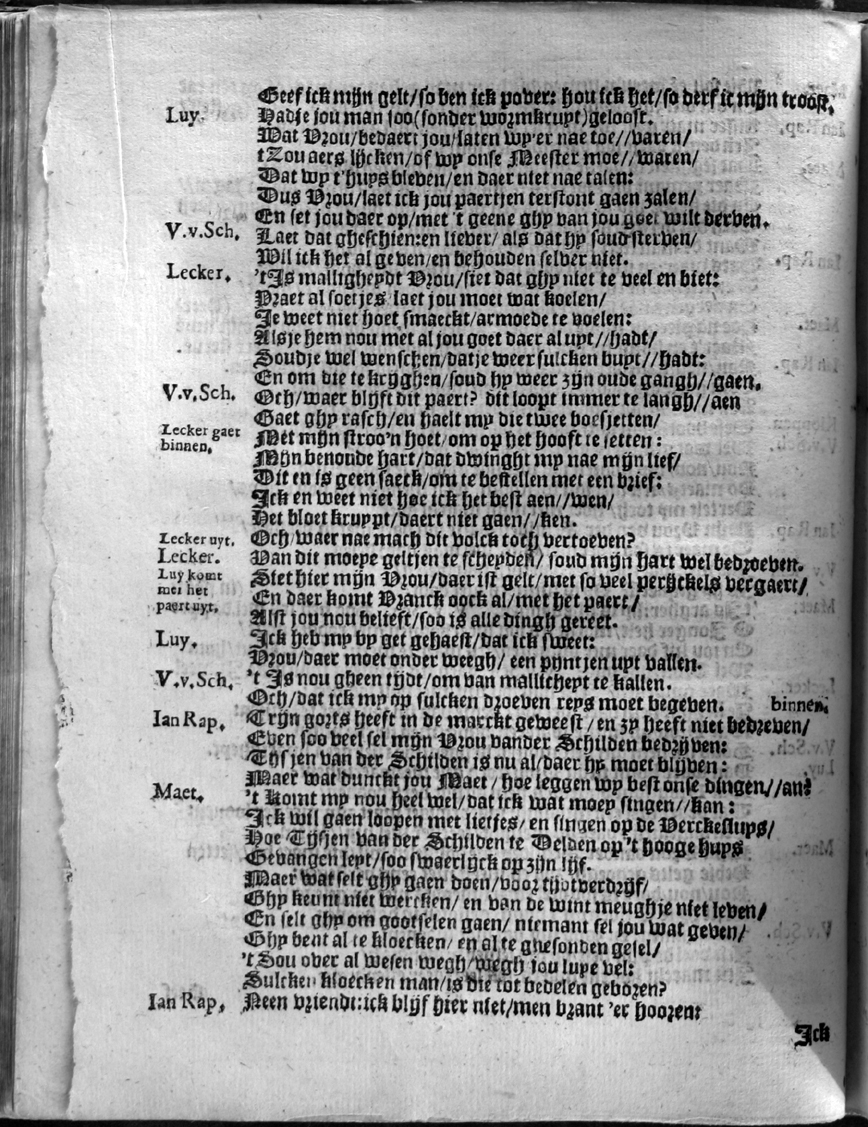 Geef ick mijn gelt/so ben ick pover: hou ick het/so derf ic mijn troost.
Luy. Hadje jou man soo(sonder wormkruyt)geloost.
Wat Vrou/bedaert jou/laten wy'er nae toe//varen/
tZou aers lijcken/of wy onse Meester moe//waren/
Dat wy t'huys bleven/en daer niet nae talen:
Dus Vrou/laet ick jou paertjen terstont gaen zalen/
En set jou daer op/met 't geene ghy van jou goet wilt derven.
V.v.Sch. Laet dat gheschien:en liever/ als dat hy soud sterven/
Wil ick het al geven/en behouden selver niet.
Lecker. 't Is malligheydt Vrou/siet dat ghy niet te veel en biet:
Praet al soetjes/laet jou moet wat koelen/
Je weet niet hoet smaeckt/armoede te voelen:
Alsje hem nou met al jou goet daer al uyt//hadt/
Soudje wel wenschen/datje weer sulcken buyt//hadt:
En om die te krijghen/soud hy weer zijn oude gangh//gaen.
V.v.Sch. Och/waer blijft dit paert? dit loopt immer te langh//aen
Gaet ghy rasch/en haelt my die twee boesjetten/
Lecker gaet binnen. Met mijn stroo'n hoet/om op het hooft te setten:
Mijn benoude hart/dat dwinght my nae mijn lief/
Dit en is geen saeck/om te bestellen met een brief:
Ick en weet niet hoe ick het best aen//wen/
Het bloet kruypt/daert niet gaen//ken.
Lecker uyt. Och/waer nae mach dit volck toch vertoeven?
Lecker. Van dit moeye geltjen te scheyden/ soud mijn hart wel bedroeven.
Luy komt met het paert uyt. Siet hier mijn Vrou/daer ist gelt/met so veel perijckels vergaert/
En daer komt Vranck oock al/met het paert/
Alst jou nou belieft/soo is alle dingh gereet.
Luy. Ick heb my by get gehaest/dat ick sweet:
Vrou/daer moet onder weegh/ een pyntjen uyt vallen.
V.v.Sch. 't Is nou gheen tijdt/om van mallicheyt te kallen.
Och/dat ick my op sulcken droeven reys moet begeven. binnen.
Ian Rap. Trijn gorts heeft in de marckt geweest/en zy heeft niet bedreven/
Even soo veel sel mijn Vrou vander Schilden bedrijven:
Tijsjen van der Schilden is nu al/daer hy moet blijven:
Maer wat dunckt jou Maet/hoe leggen wy best onse dingen//an?
Maet. 't Komt my nou heel wel/dat ick wat moey singen//kan:
Ick wil gaen loopen met lietjes/en singen op de Verckesluys/
Hoe Tijsjen van der Schilden te Delden op 't hooge huys
Gevangen leyt/soo swaerlijck op zijn lijf.
Maer wat selt ghy gaen doen/voor tijdtverdrijf/
Ghy keunt niet wercken/en van de wint meughje niet leven/
En selt ghy om gootselen gaen/ niemant sel jou wat geven/
Ghy bent al te kloecken/en al te ghesonden gesel/
't Sou over al wesen wegh/wegh jou luye vel:
Sulcken kloecken man/is die tot bedelen geboren?
Ian Rap. Neen vriendt:ick blijf hier niet/men brant 'er hooren:
Ick